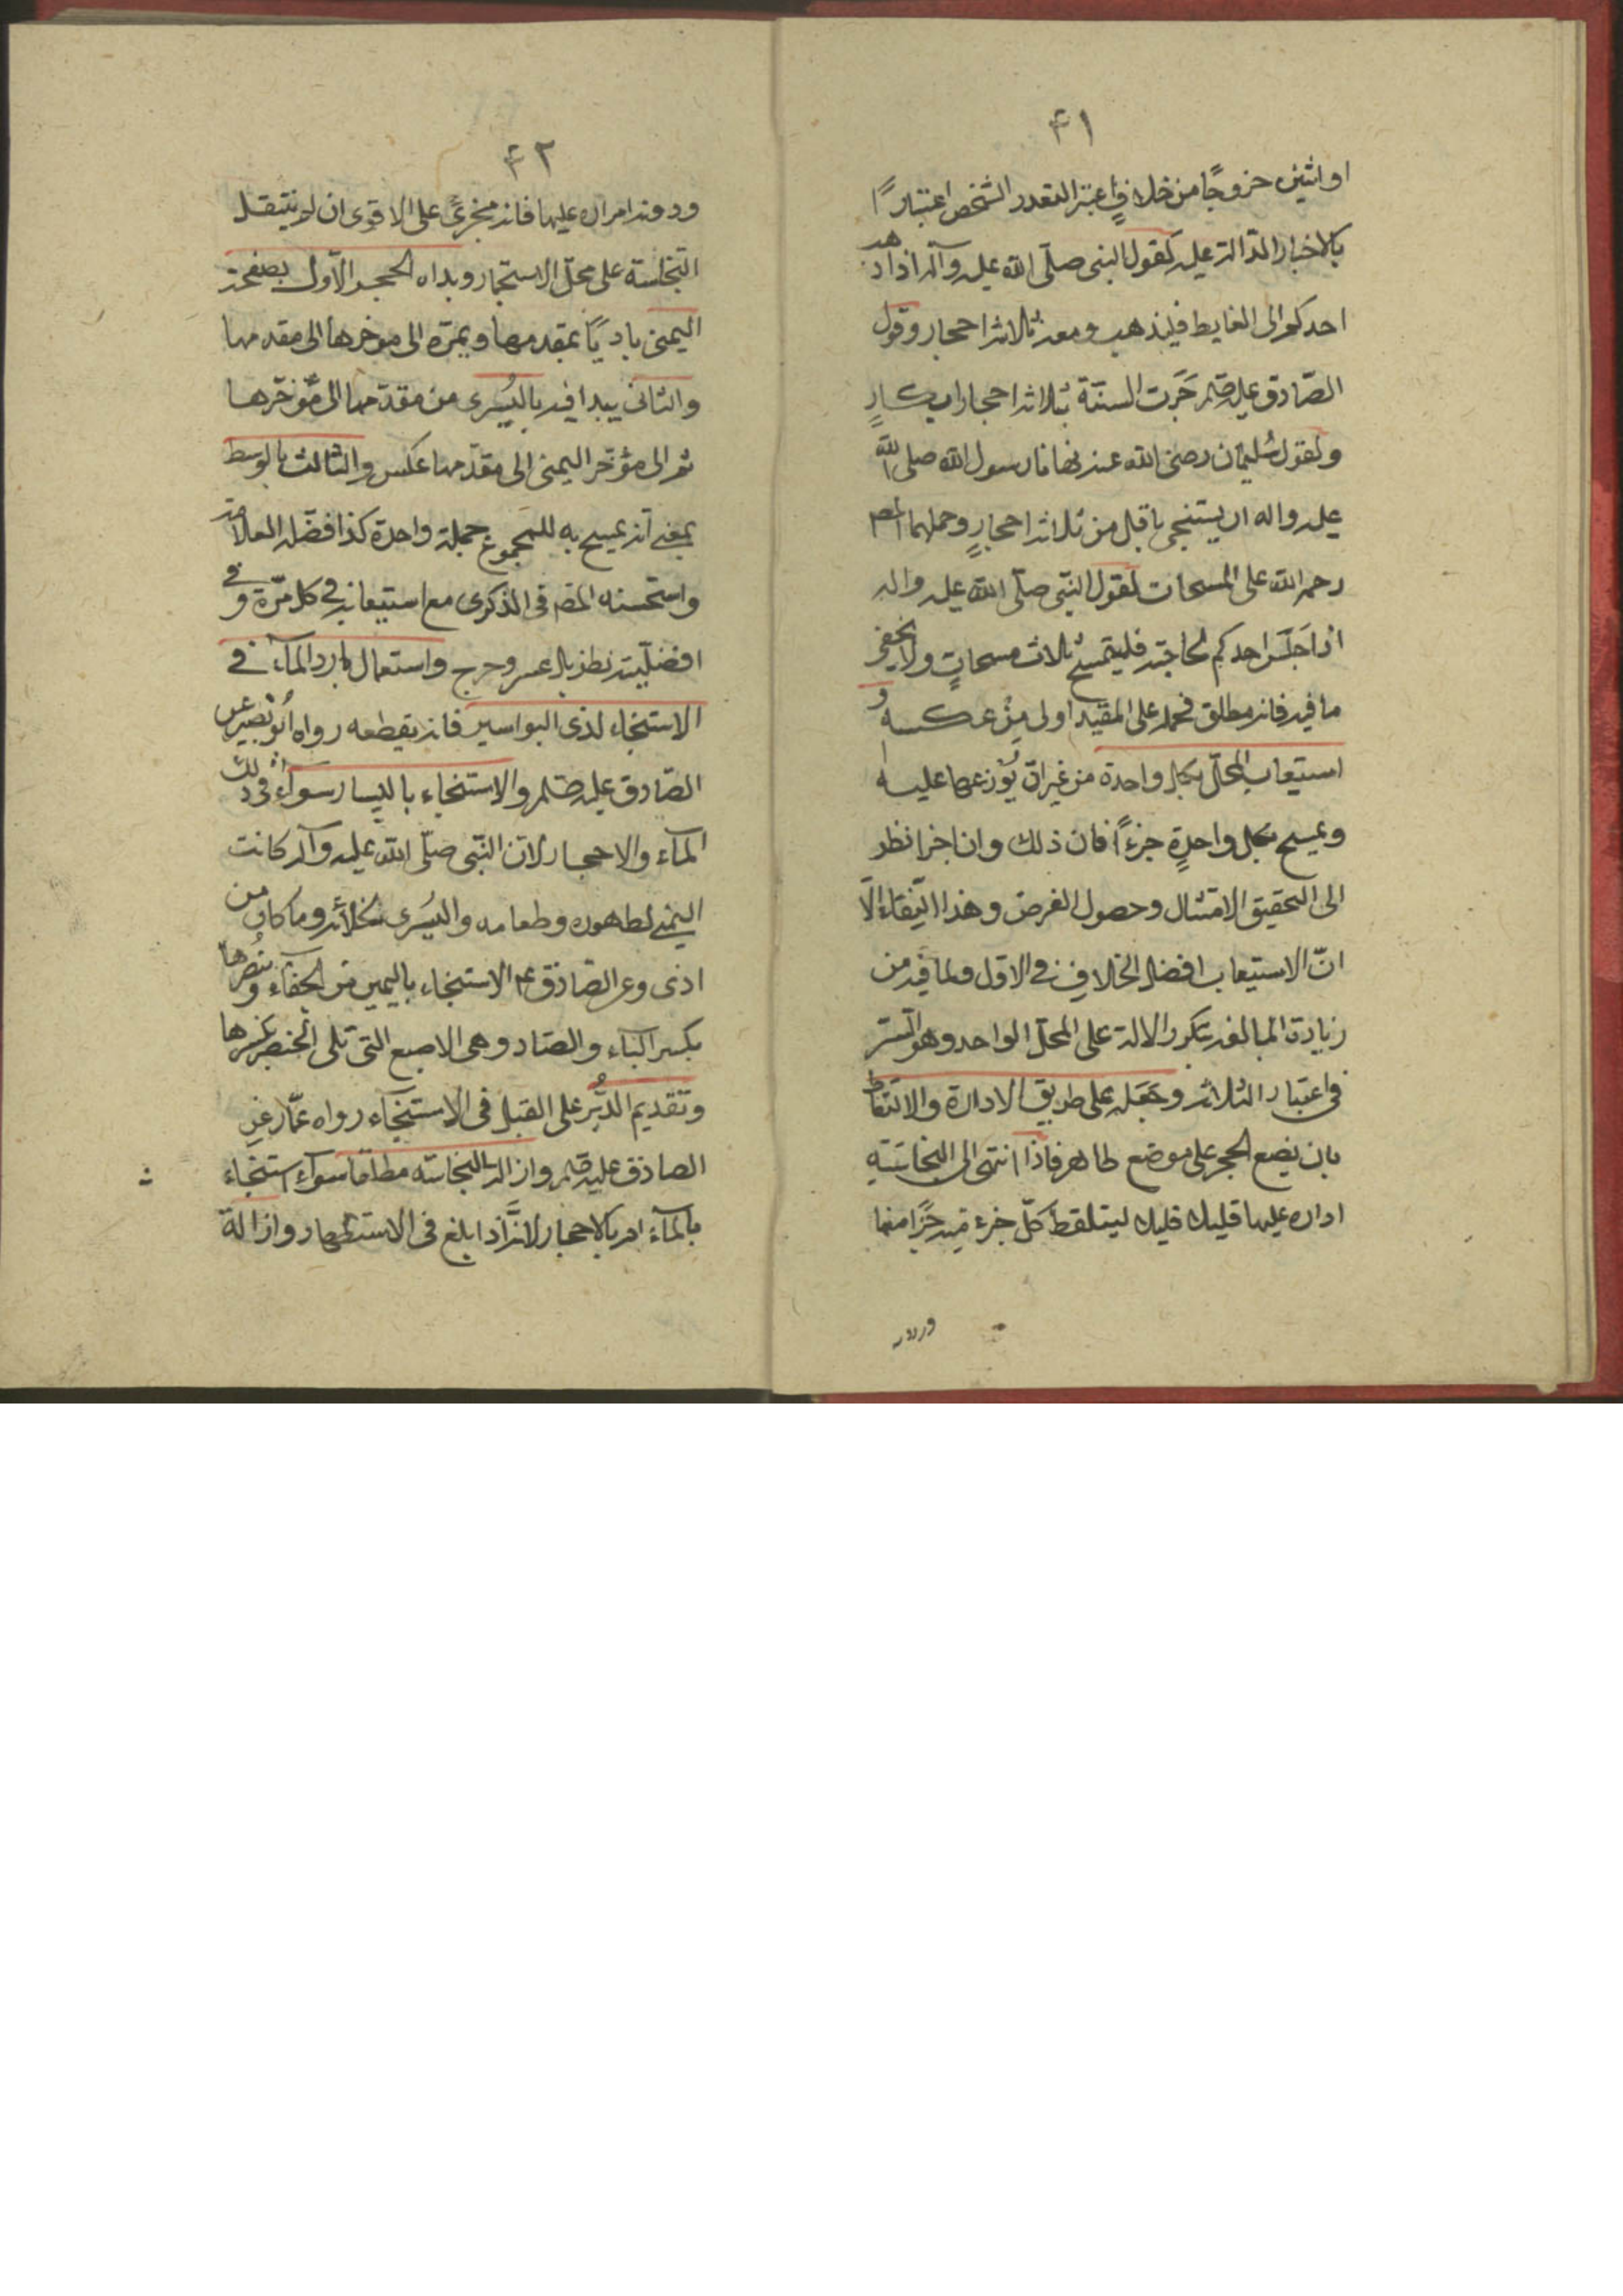 ٤١
او اثنين خروجًا من خلافٍ اعتبر التعدد الشخص اعتبارًا
بالاخبار الدالة عليه كقول النبى صلّى الله عليه وآله اذا ذهب
احدكم الى الغايط فليذهب ومعه ثلاثة احجار وقول
الصّادق عليه السلم جَرَت السنّة بثلاثة احجار ابكارٍ
ولقول سُليمان رضى الله عنه نهانا رسول الله صلى الله
عليه واله ان يستنجى باقل من ثلاثة احجارٍ وحملهما المص
رحمه الله على المسحات لقول النبّى صلّى الله عليه واله
اذا جَلَسَ احدكم لحاجته فليتمسح ثلاث مسحاتٍ ولا يخفى
ما فيه فانه مطلق فحمله على المقيد اولى مِنْ عكسه و
استيعاب المحلّ بكل واحدة من غير ان يُوزعها عليه
ويمسح بكل واحدةٍ جزءًا فان ذلك وان اجزا نظر
الى التحقيق الامتثال وحصول الغرض وهذا النقاء الّا
انّ الاستيعاب افضل الخلاف فى الاول ولما فيه من
زيادة المبالغه بتكرر الالة على المحلّ الواحد وهو السّر
فى اعتبار الثلاثه وجَعَله على طريق الادارة والالتقاط
بان يضع الحجر على موضع طاهر فاذا انتهى الى النجاسَتهِ
اداره عليها قليلا قليلا ليتلقط كلّ جزء منه جزًا منها
ودونه
٤٢
ودونه امراره عليها فانه مجزئً على الاقوى ان لم ينتقل
النّجاسته على محلّ الاستجمار وبداه الحجر الاوّل بصفحته
اليمنى باديًا بمقدمها ويمرّه الى موخرها الى مقدمها
والثانى يبدا فيه باليُسرى من مقدّمها الى مُؤخّرها
ثم الى مؤخّر اليمنى الى مقدّمها عكس والثالث بالوَسط
بمعنى انه يمسح به المجموع جملة واحدة كذا فضّله العلامة
واستحسنه المص فى الذكرى مع استيعابه فى كل مرّة و فى
افضليّته نظر بل عسر وحرج واستعمال بارد المآء فى
الاستنجاء لذى البواسير فانه يقطعه رواه اُبو بصير عن
الصّادق عليه السلم والاستنجاء باليسار سوآء فى ذلك
المآء والاحجار لانّ النّبى صلّى الله عليه وآله كانت
اليمنى لطهوره وطعامه واليُسرى لخلائه وما كان من
اذى وعن الصّادق ع الاستنجاء باليمين من الجفآء وبنصرها
بكسر الباء والصّاد وهى الاصبع التى تلى الخنصر بكسرها
وتقديم الدُّبُر على القبل فى الاستنجآء رواه عمّار عن
الصادق عليه السلم وازالة النجاسته مطلقا سوآء استنجاء
بالمآء ام بالاحجار لانّه ابلغ فى الاستظهار وازالة